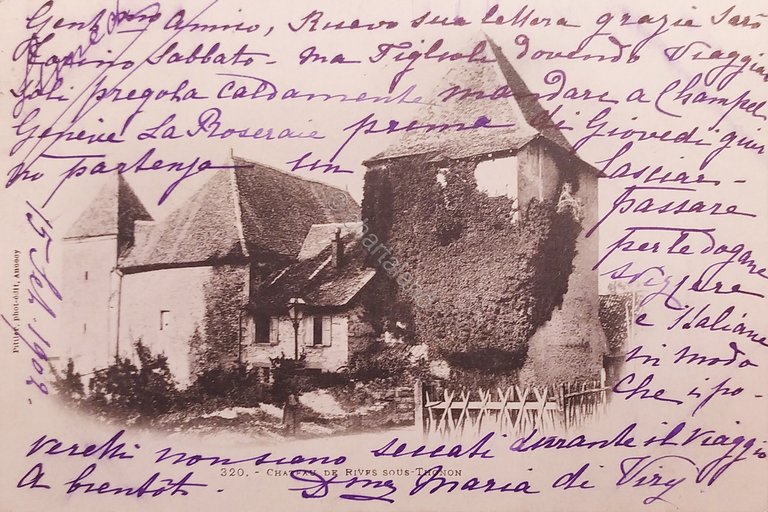 Gent.mo Amico, Ricevo sua lettera grazie Sarò
Torino Sabbato - ma Figlioli dovendo viaggiar
soli pregola caldamente mandare a Champel
Genève La Roseraie prima di Giovedi gior
no partenza un
lasciar-
passare
per le dogane
svizzere
e Italiane
in modo
che i po-
veretti non siano seccati durante il viaggio
A bientôt. D.na Maria di Viry
15 Feb. 1902.
Pittier, phot-édit, Annecy
320. - CHATEAU DE RIVES SOUS-THONON